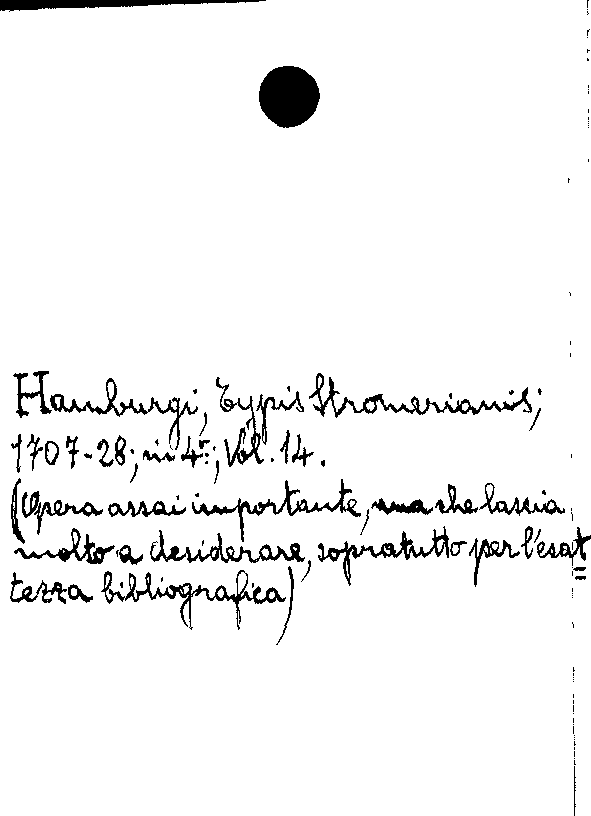 Hamburgi, Typis Stromerianis;
1707-28; in 4º; Vol. 14.
(Opera assai importante, ma che lascia
molto a desiderare, sopratutto per l'esat=
tezza bibliografica)